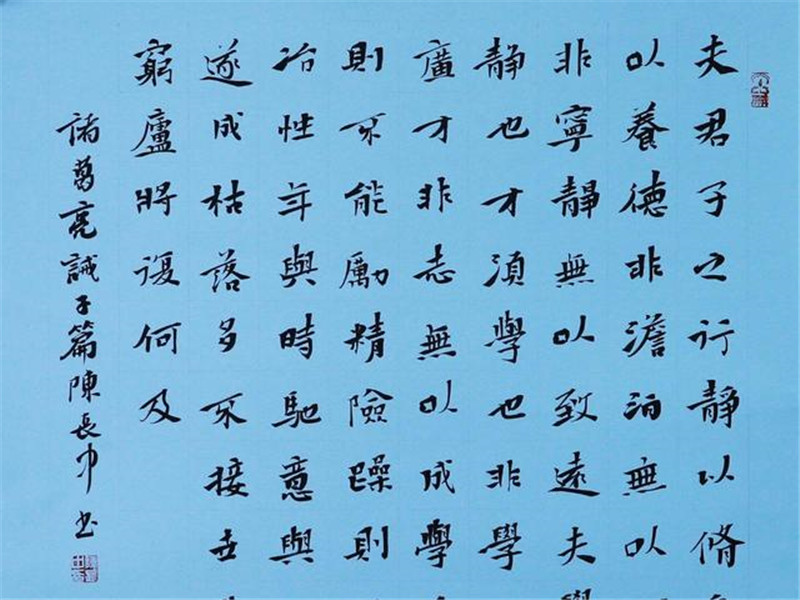 夫君子之行靜以脩
以養德非澹泊無以
非寧靜無以致遠夫
靜也才須學也非學
廣才非志無以成學
則不能勵精險躁則
冶性年與時馳意與
遂成枯落多不接世
窮廬將復何及
諸葛亮誡子篇陳長书